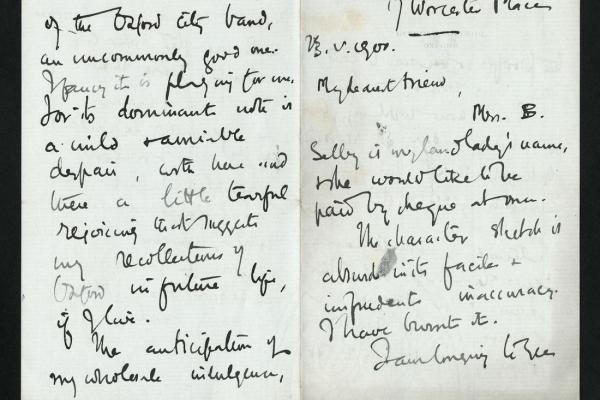 of the Oxford City band,
an uncommonly good one.
I fancy it is playing for me,
for its dominant note is
a mild & amiable
despair, with here and
there a little tearful
rejoicing that suggests
my recollections of
Oxford in future life,
if I live.
The anticipation of
my wholesale indulgence,
7 Worcester Place
23. v. 1900.
My dearest friend,
Mrs. B.
Selby is my landlady's name,
& she would like to be
paid by cheque at once.
The character sketch is
absurd in its facile &
imprudent inaccuracy.
I have burnt it.
I am longing to see